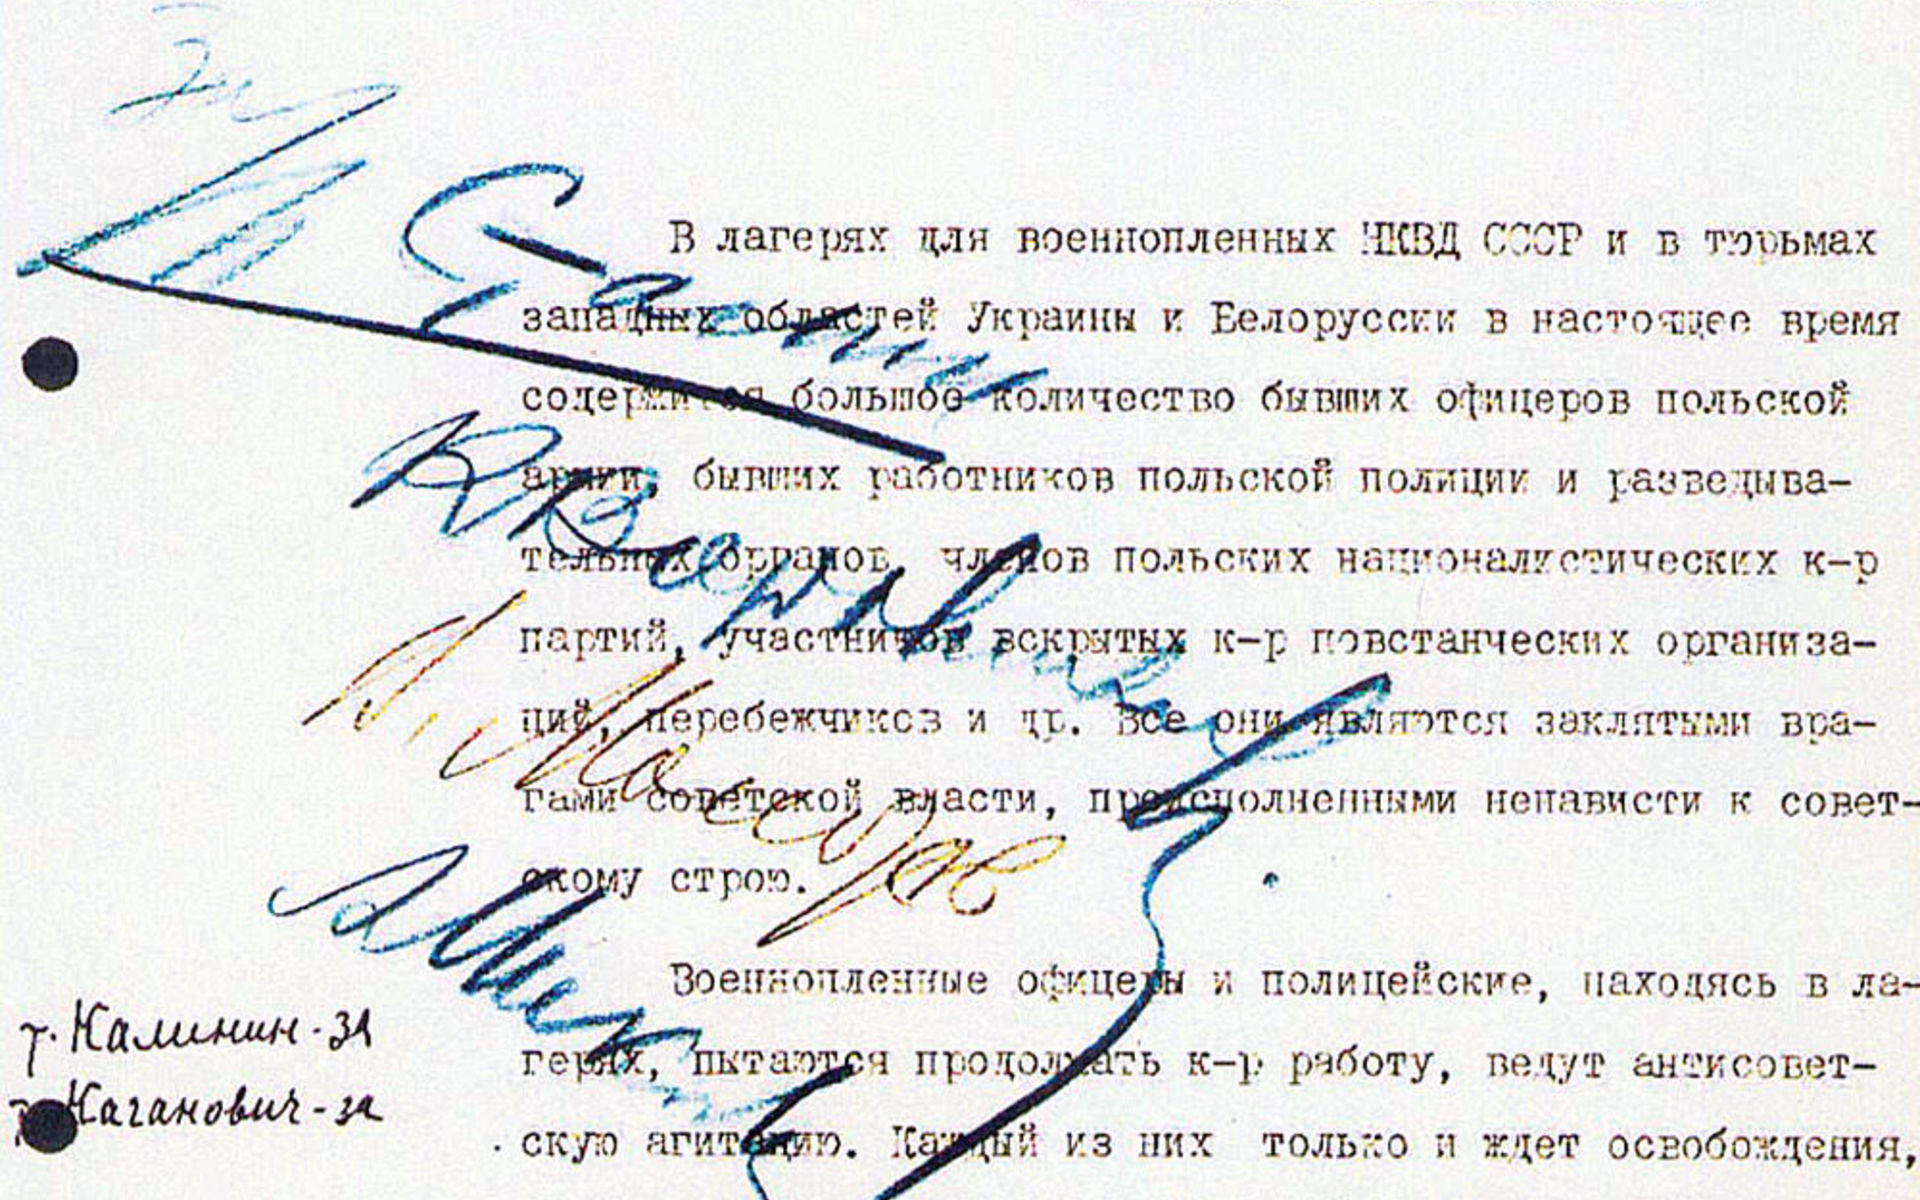 За
И Сталин
К Ворошилов
В. Молотов
А Микоян
В лагерях для военнопленных НКВД СССР и в тюрьмах
западных областей Украины и Белоруссии в настоящее время
содержится большое количество бывших офицеров польской
армии, бывших работников польской полиции и разведыва-
тельных органов, членов польских националистических к-р
партий, участников вскрытых к-р повстанческих организа-
ций, перебежчиков и др. Все они являются заклятыми вра-
гами советской власти, преисполненными ненависти к совет-
скому строю.
Военнопленные офицеры и полицейские, находясь в ла-
герях, пытаются продолжать к-р работу, ведут антисовет-
скую агитацию. Каждый из них только и ждет освобождения,
т. Калинин - за
Каганович - за